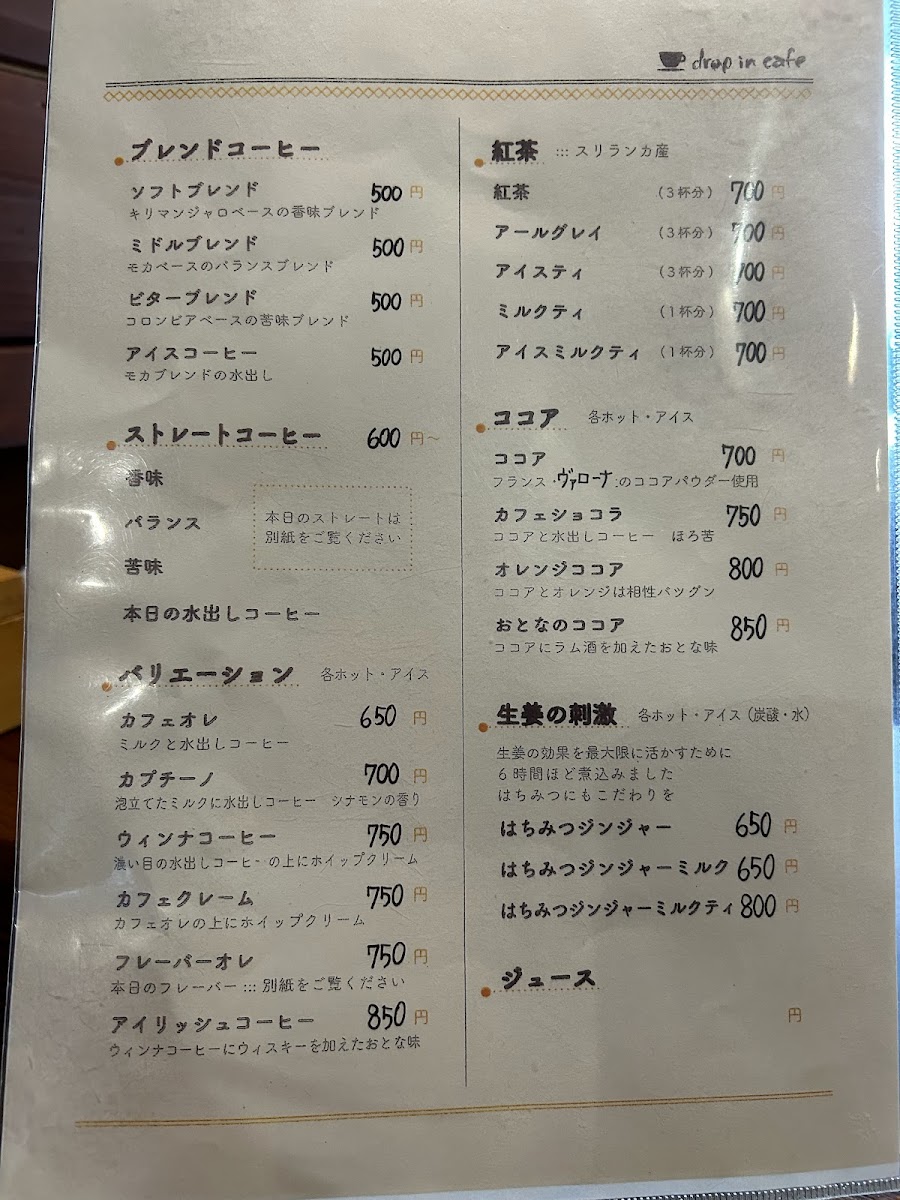 drop in cafe
ブレンドコーヒー
ソフトブレンド 500円
キリマンジャロベースの香味ブレンド
ミドルブレンド 500円
モカベースのバランスブレンド
ビターブレンド 500円
コロンビアベースの苦味ブレンド
アイスコーヒー 500円
モカブレンドの水出し
ストレートコーヒー 600円～
香味
バランス
苦味
本日のストレートは
別紙をご覧ください
本日の水出しコーヒー
バリエーション 各ホット・アイス
カフェオレ 650円
ミルクと水出しコーヒー
カプチーノ 700円
泡立てたミルクに水出しコーヒー シナモンの香り
ウィンナコーヒー 750円
濃い目の水出しコーヒーの上にホイップクリーム
カフェクレーム 750円
カフェオレの上にホイップクリーム
フレーバーオレ 750円
本日のフレーバー ::: 別紙をご覧ください
アイリッシュコーヒー 850円
ウィンナコーヒーにウィスキーを加えたおとな味
紅茶 ::: スリランカ産
紅茶 （3杯分） 700円
アールグレイ （3杯分） 700円
アイスティ （3杯分） 700円
ミルクティ （1杯分） 700円
アイスミルクティ （1杯分） 700円
ココア 各ホット・アイス
ココア 700円
フランス・ヴァローナ:のココアパウダー使用
カフェショコラ 750円
ココアと水出しコーヒー ほろ苦
オレンジココア 800円
ココアとオレンジは相性バツグン
おとなのココア 850円
ココアにラム酒を加えたおとな味
生姜の刺激 各ホット・アイス（炭酸・水）
生姜の効果を最大限に活かすために
6時間ほど煮込みました
はちみつにもこだわりを
はちみつジンジャー 650円
はちみつジンジャーミルク 650円
はちみつジンジャーミルクティ 800円
ジュース
円